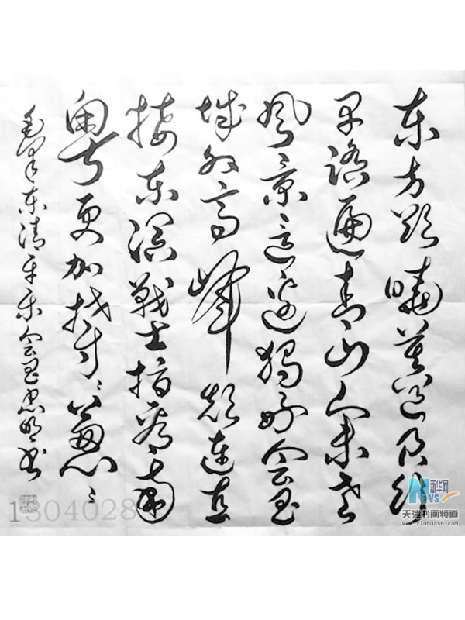 东方欲晓莫道君行
早踏遍青山人未老
风景这边独好会昌
城外高峰颠连直
接东溟战士指看南
粤更加郁々葱々
毛泽东清平乐会昌书
1304028